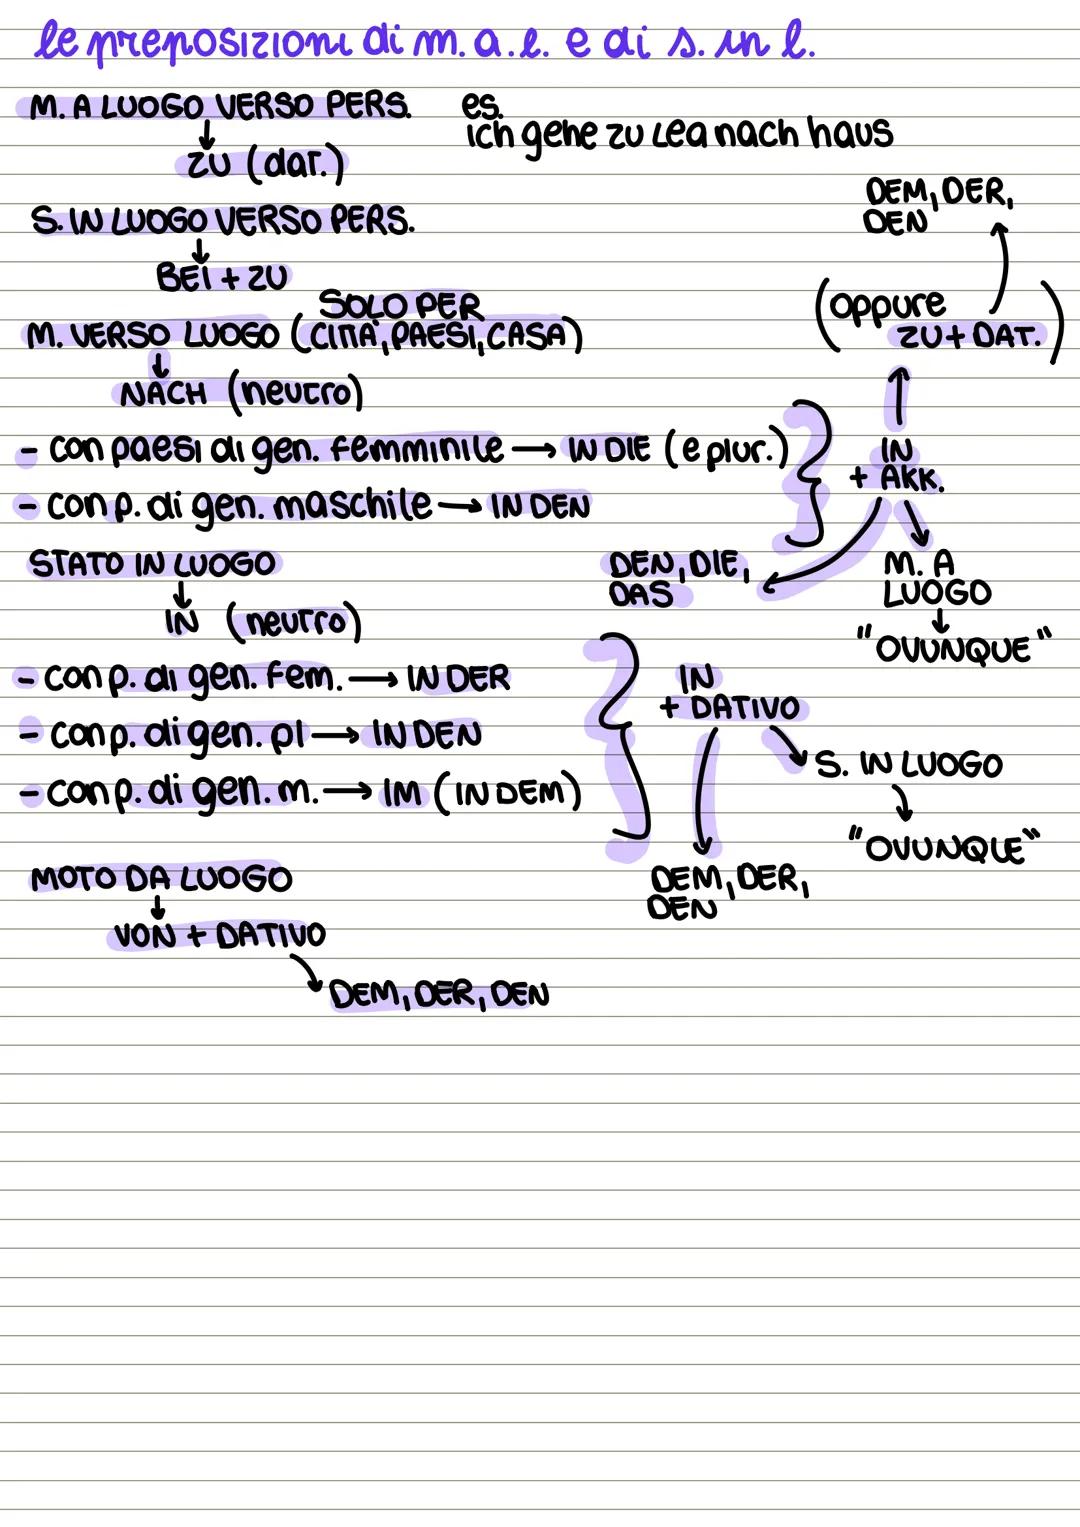 le preposizioni di m. a. l. e di s. in l.
M. A LUOGO VERSO PERS.
es.
ich gehe zu Lea nach haus
ZU (dat.)
S. IN LUOGO VERSO PERS.
BEI + ZU
SOLO PER
M. VERSO LUOGO (CITTÀ, PAESI, CASA)
NACH (neutro)
- con paesi di gen. femminile → IN DIE (e plur.)
- con p. di gen. maschile → IN DEN
DEM, DER,
DEN
(oppure
ZU + DAT.)
IN
+ AKK.
DEN, DIE,
DAS
M. A
LUOGO
"OVUNQUE"
STATO IN LUOGO
IN (neutro)
- con p. di gen. fem. → IN DER
- con p. di gen. pl → IN DEN
- con p. di gen. m. → IM (IN DEM)
IN
+ DATIVO
S. IN LUOGO
"OVUNQUE"
DEM, DER,
DEN
MOTO DA LUOGO
VON + DATIVO
DEM, DER, DEN